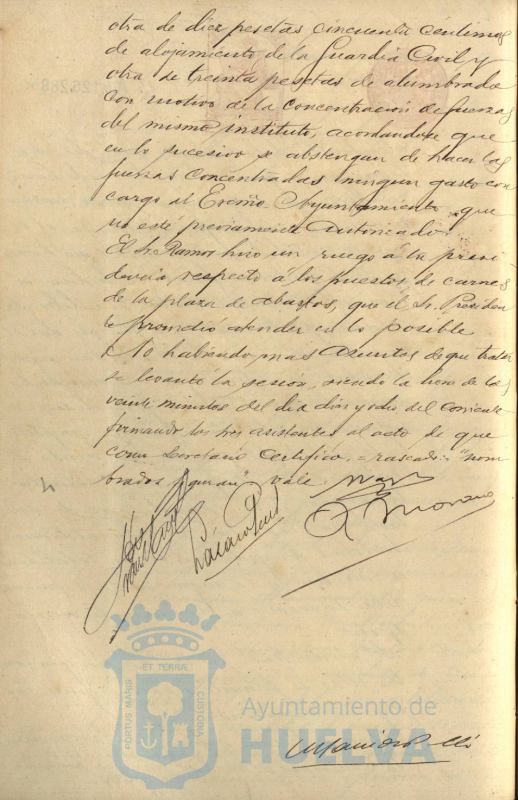 otra de diez pesetas cincuenta céntimos
de alojamiento de la Guardia Civil y
otra de treinta pesetas de alumbrado
con motivo de la concentración de fuerzas
del mismo instituto, acordandose que
en lo sucesivo se abstengan de hacer las
fuerzas concentradas ningun gasto con
cargo al Excmo Ayuntamiento que
no esté previamente autorizado.
El Sr. Ramos hizo un ruego á la presi
dencia respecto á los puestos de carnes
de la plaza de abastos, que el Sr. Presiden
te prometió atender en lo posible.
No habiendo mas asuntos de que tratar
se levantó la sesión, siendo la hora de las
veinte minutos del dia diez y ocho del corriente
firmando los Sres asistentes al acto de que
como Secretario certifico. = raspado: "nom
brados figuran" vale.
Moreno
ET TERRÆ
PORTUS MARIS
CUSTODIA
Ayuntamiento de
HUELVA